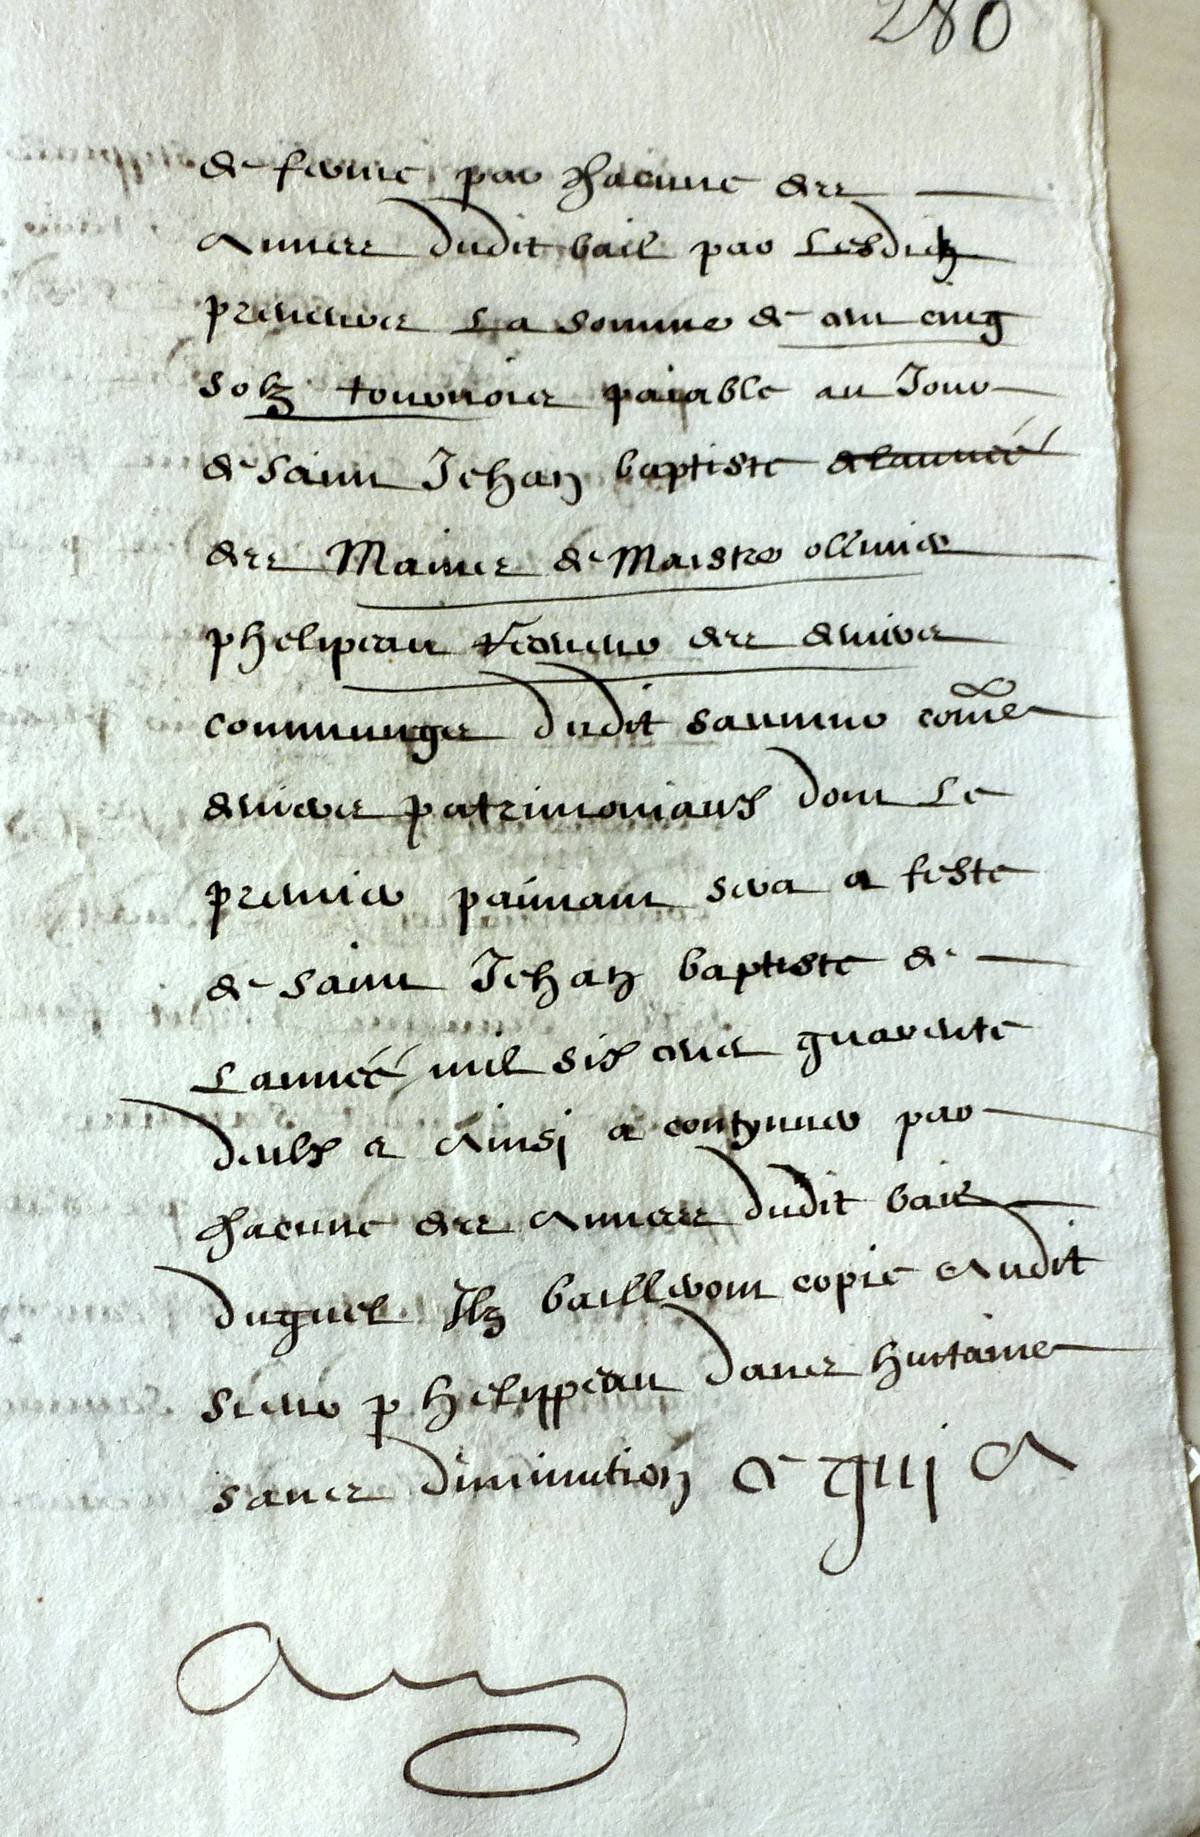 280
de ferme par chacune des
Annees dudit bail par Lesdictz
preneurs La somme de cent cinq
solz tournois paiable au Jour
de Saint Jehan baptiste de lannéé
des Mains de Maistre ollivier
phelipeau Recepveur des deniers
communs dudit saumur come
deniers patrimoniaux dont Le
premier paimant sera a feste
de Saint Jehan baptiste de
Lannéé mil six cens quarente
deulx et Ainsi a contynuer par
chacune des Annees dudit bail
duquel Ilz bailleront copie Audit
sieur phelippeau dans huitaine
sans diminution Et qui A